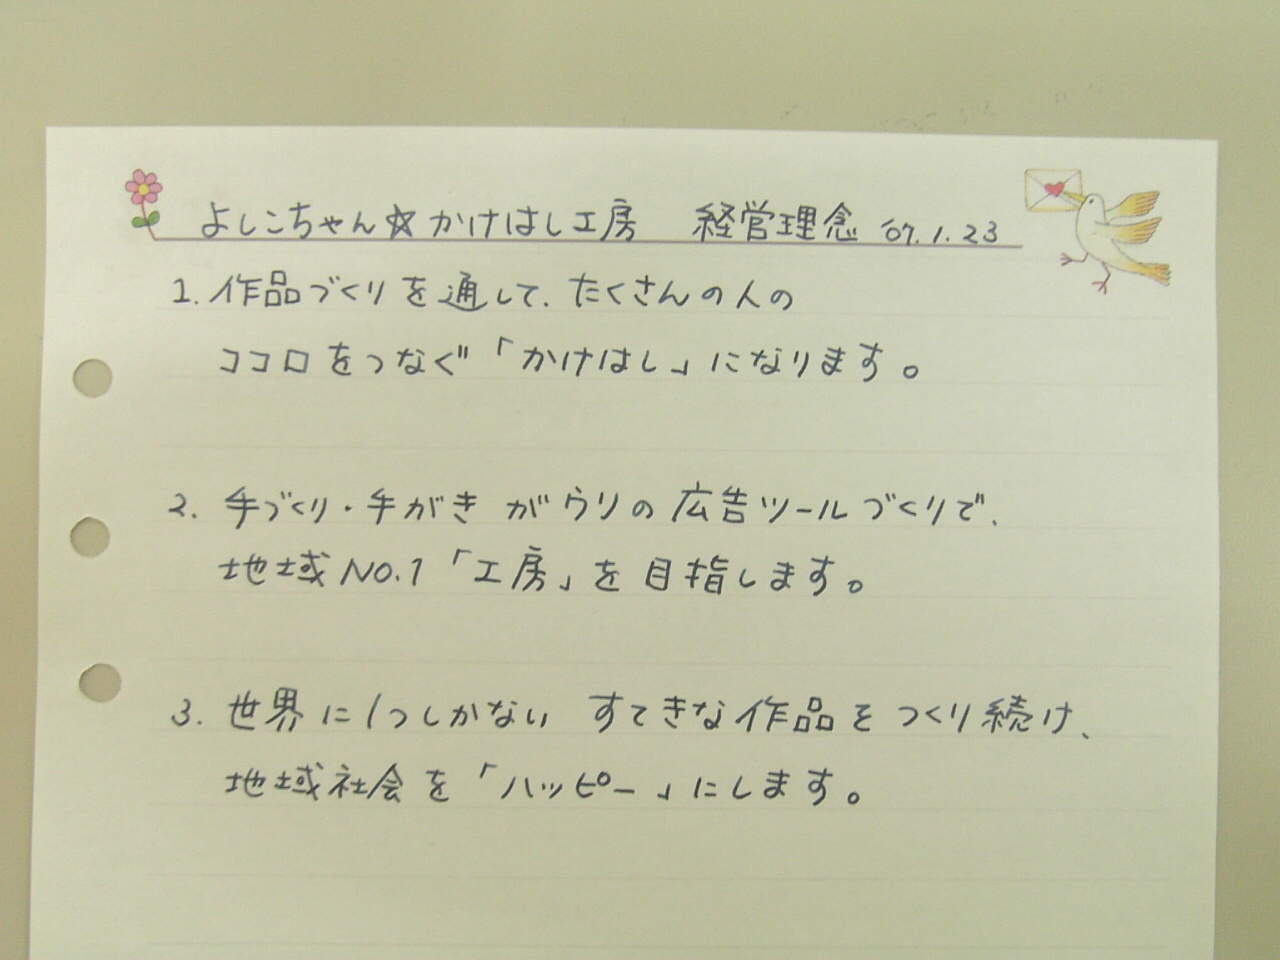 よしこちゃん☆かけはし工房 経営理念 '07.1.23
1. 作品づくりを通して、たくさんの人の
ココロをつなぐ「かけはし」になります。
2. 手づくり・手がき がウリの広告ツールづくりで、
地域NO.1「工房」を目指します。
3. 世界に1つしかない すてきな作品をつくり続け、
地域社会を「ハッピー」にします。